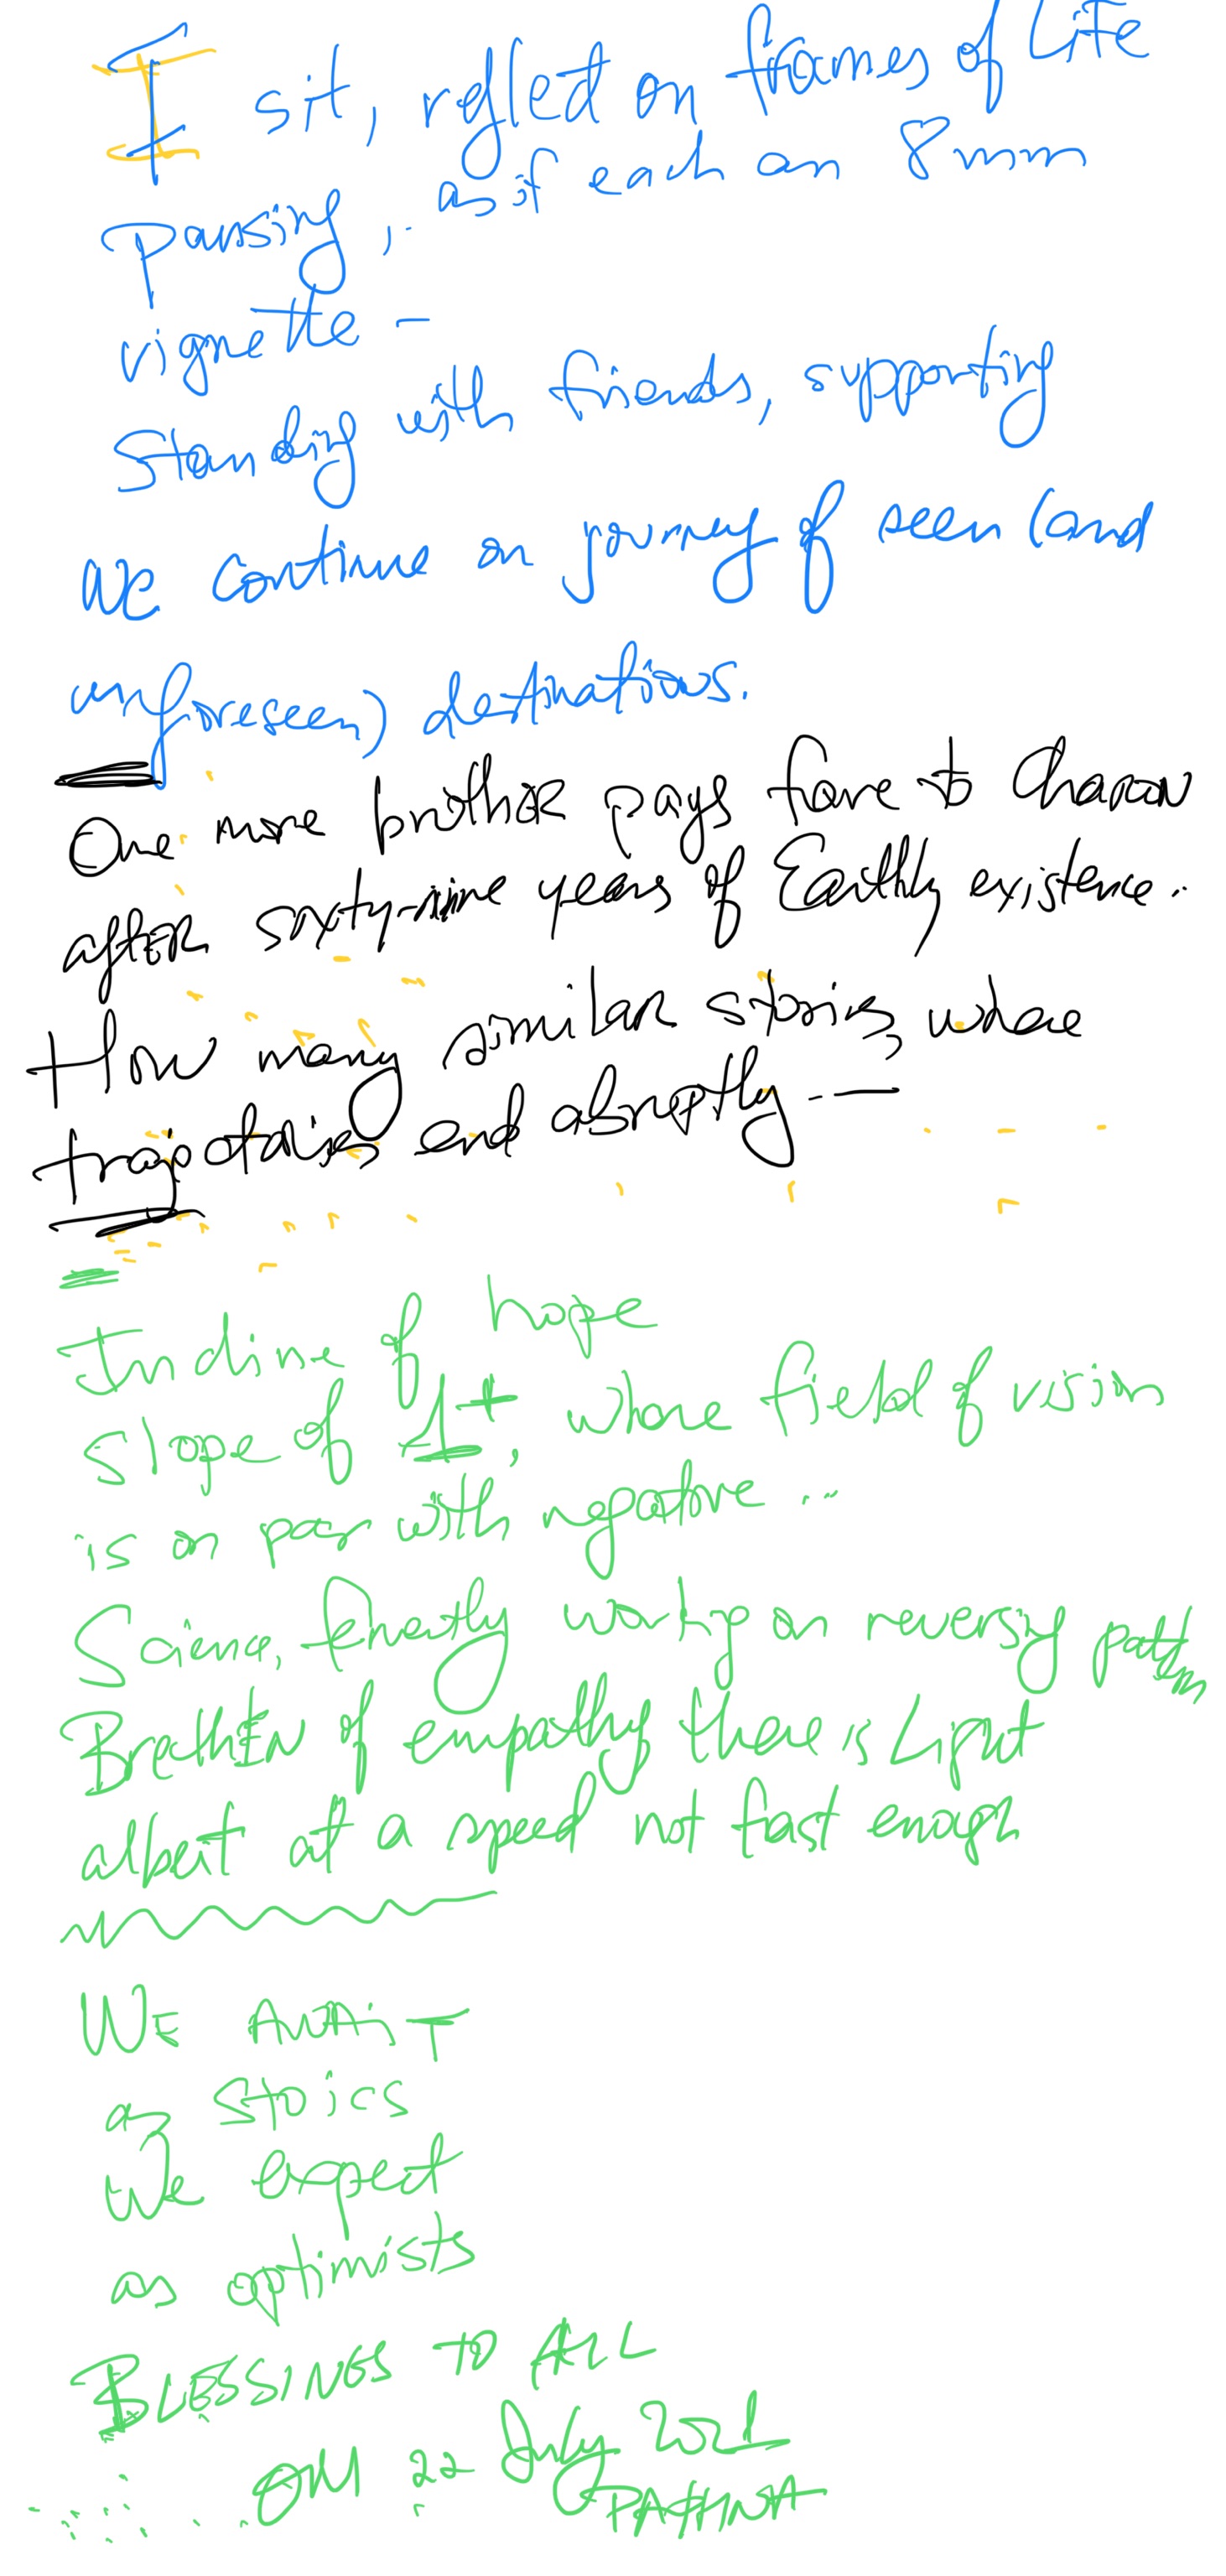 I sit, reflect on frames of Life
pausing, as if each an 8mm
vignette -
Standing with friends, supporting
We continue on journey of seen (and
unforeseen) destinations.
One more brother pays fare to Charon
after sixty-nine years of Earthly existence..
How many similar stories, where
trajectories end abruptly ---
Incline of hope
slope of 1+, where field of vision
is on par with negative ...
Science, fervently working on reversing path
Brethren of empathy there is Light
albeit at a speed not fast enough
WE AWAiT
as Stoics
We expect
as optimists
BLESSINGS TO ALL
OM 22 July 2021